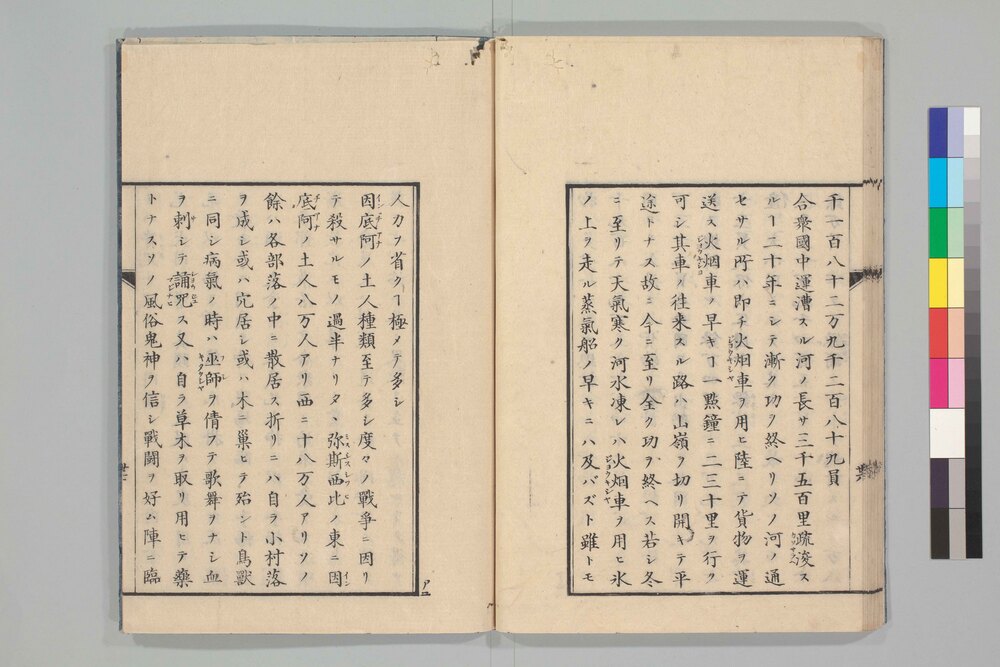 千一百八十二万九千二百八十九員
合衆國中運漕スル河ノ長サ三千五百里疏浚ス
ルヿ三十年ニシテ漸ク功ヲ終ヘリソノ河ノ通
セサル所ハ即チ火烟車ヲ用ヒ陸ニテ貨物ヲ運
送ス火烟車ノ早キヿ一點鐘ニ二三十里ヲ行ク
可シ其車ノ往来スル路ハ山嶺ヲ切リ開キテ平
途トナス故ニ今ニ至リ全ク功ヲ終ヘス若シ冬
ニ至リテ天氣寒ク河水凍レハ火烟車ヲ用ヒ氷
ノ上ヲ走ル蒸氣船ノ早キニハ及バズト雖トモ
人力ヲ省クヿ極メテ多シ
因底阿ノ土人種類至テ多シ度々ノ戦争ニ因リ
テ殺サルモノ過半ナリタヽ弥斯西比ノ東ニ因
底阿ノ土人八万人アリ西ニ十八万人アリソノ
餘ハ各部落ノ中ニ散居ス折リニハ自ラ小村落
ヲ成シ或ハ穴居シ或ハ木ニ巣ヒテ殆シト鳥獸
ニ同シ病氣ノ時ハ巫師ヲ倩フテ歌舞ヲナシ血
ヲ刺シテ誦咒ス又ハ自ラ草木ヲ取リ用ヒテ藥
トナスソノ風俗鬼神ヲ信シ戰鬪ヲ好ム陣ニ臨